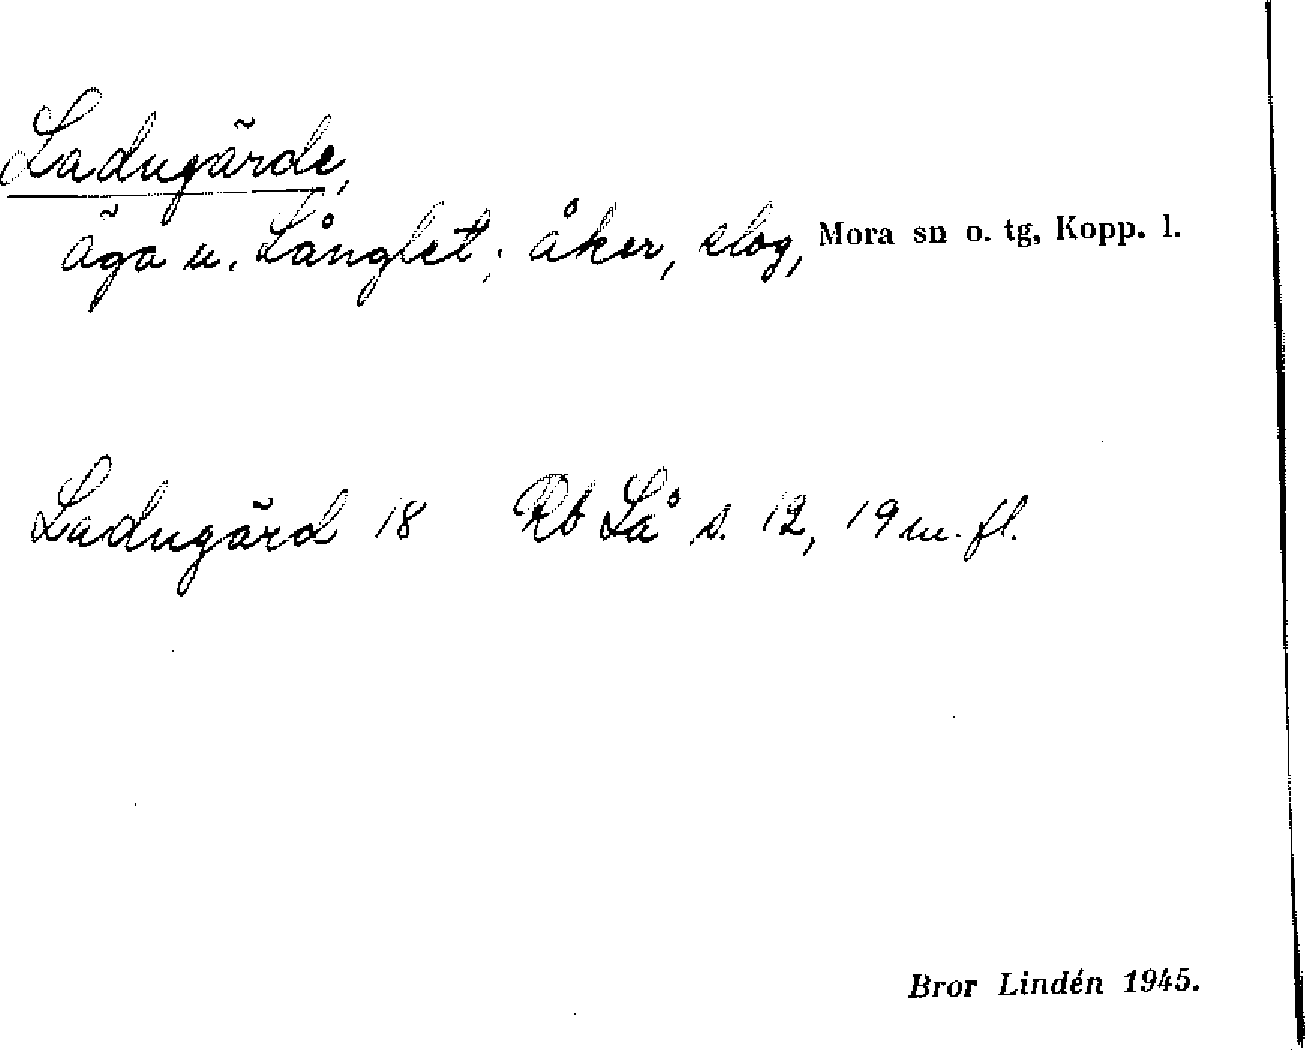 Ladugärde,
äga u. Långlet; åker, slog, Mora sn o. tg, Kopp. l.
Ladugärd 18 Rb Lå s. 12, 19 m. fl.
Bror Lindén 1945.